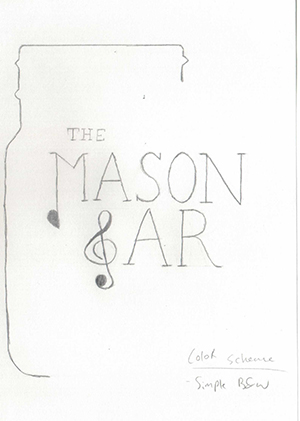 THE
MASON
JAR
Color Scheme
- Simple B&W